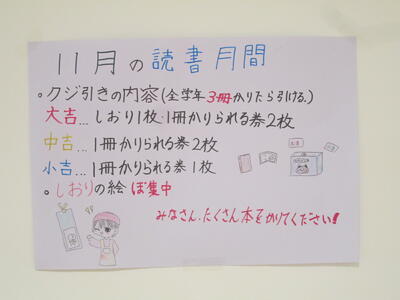 11月の読書月間
。クジ引きの内容(全学年3冊かりたら引ける.)
大吉...しおり1枚・1冊かりられる券2枚
中吉...1冊かりられる券2枚
小吉...1冊かりられる券1枚
。しおりの絵 ぼ集中
みなさん、たくさん本をかりてください!